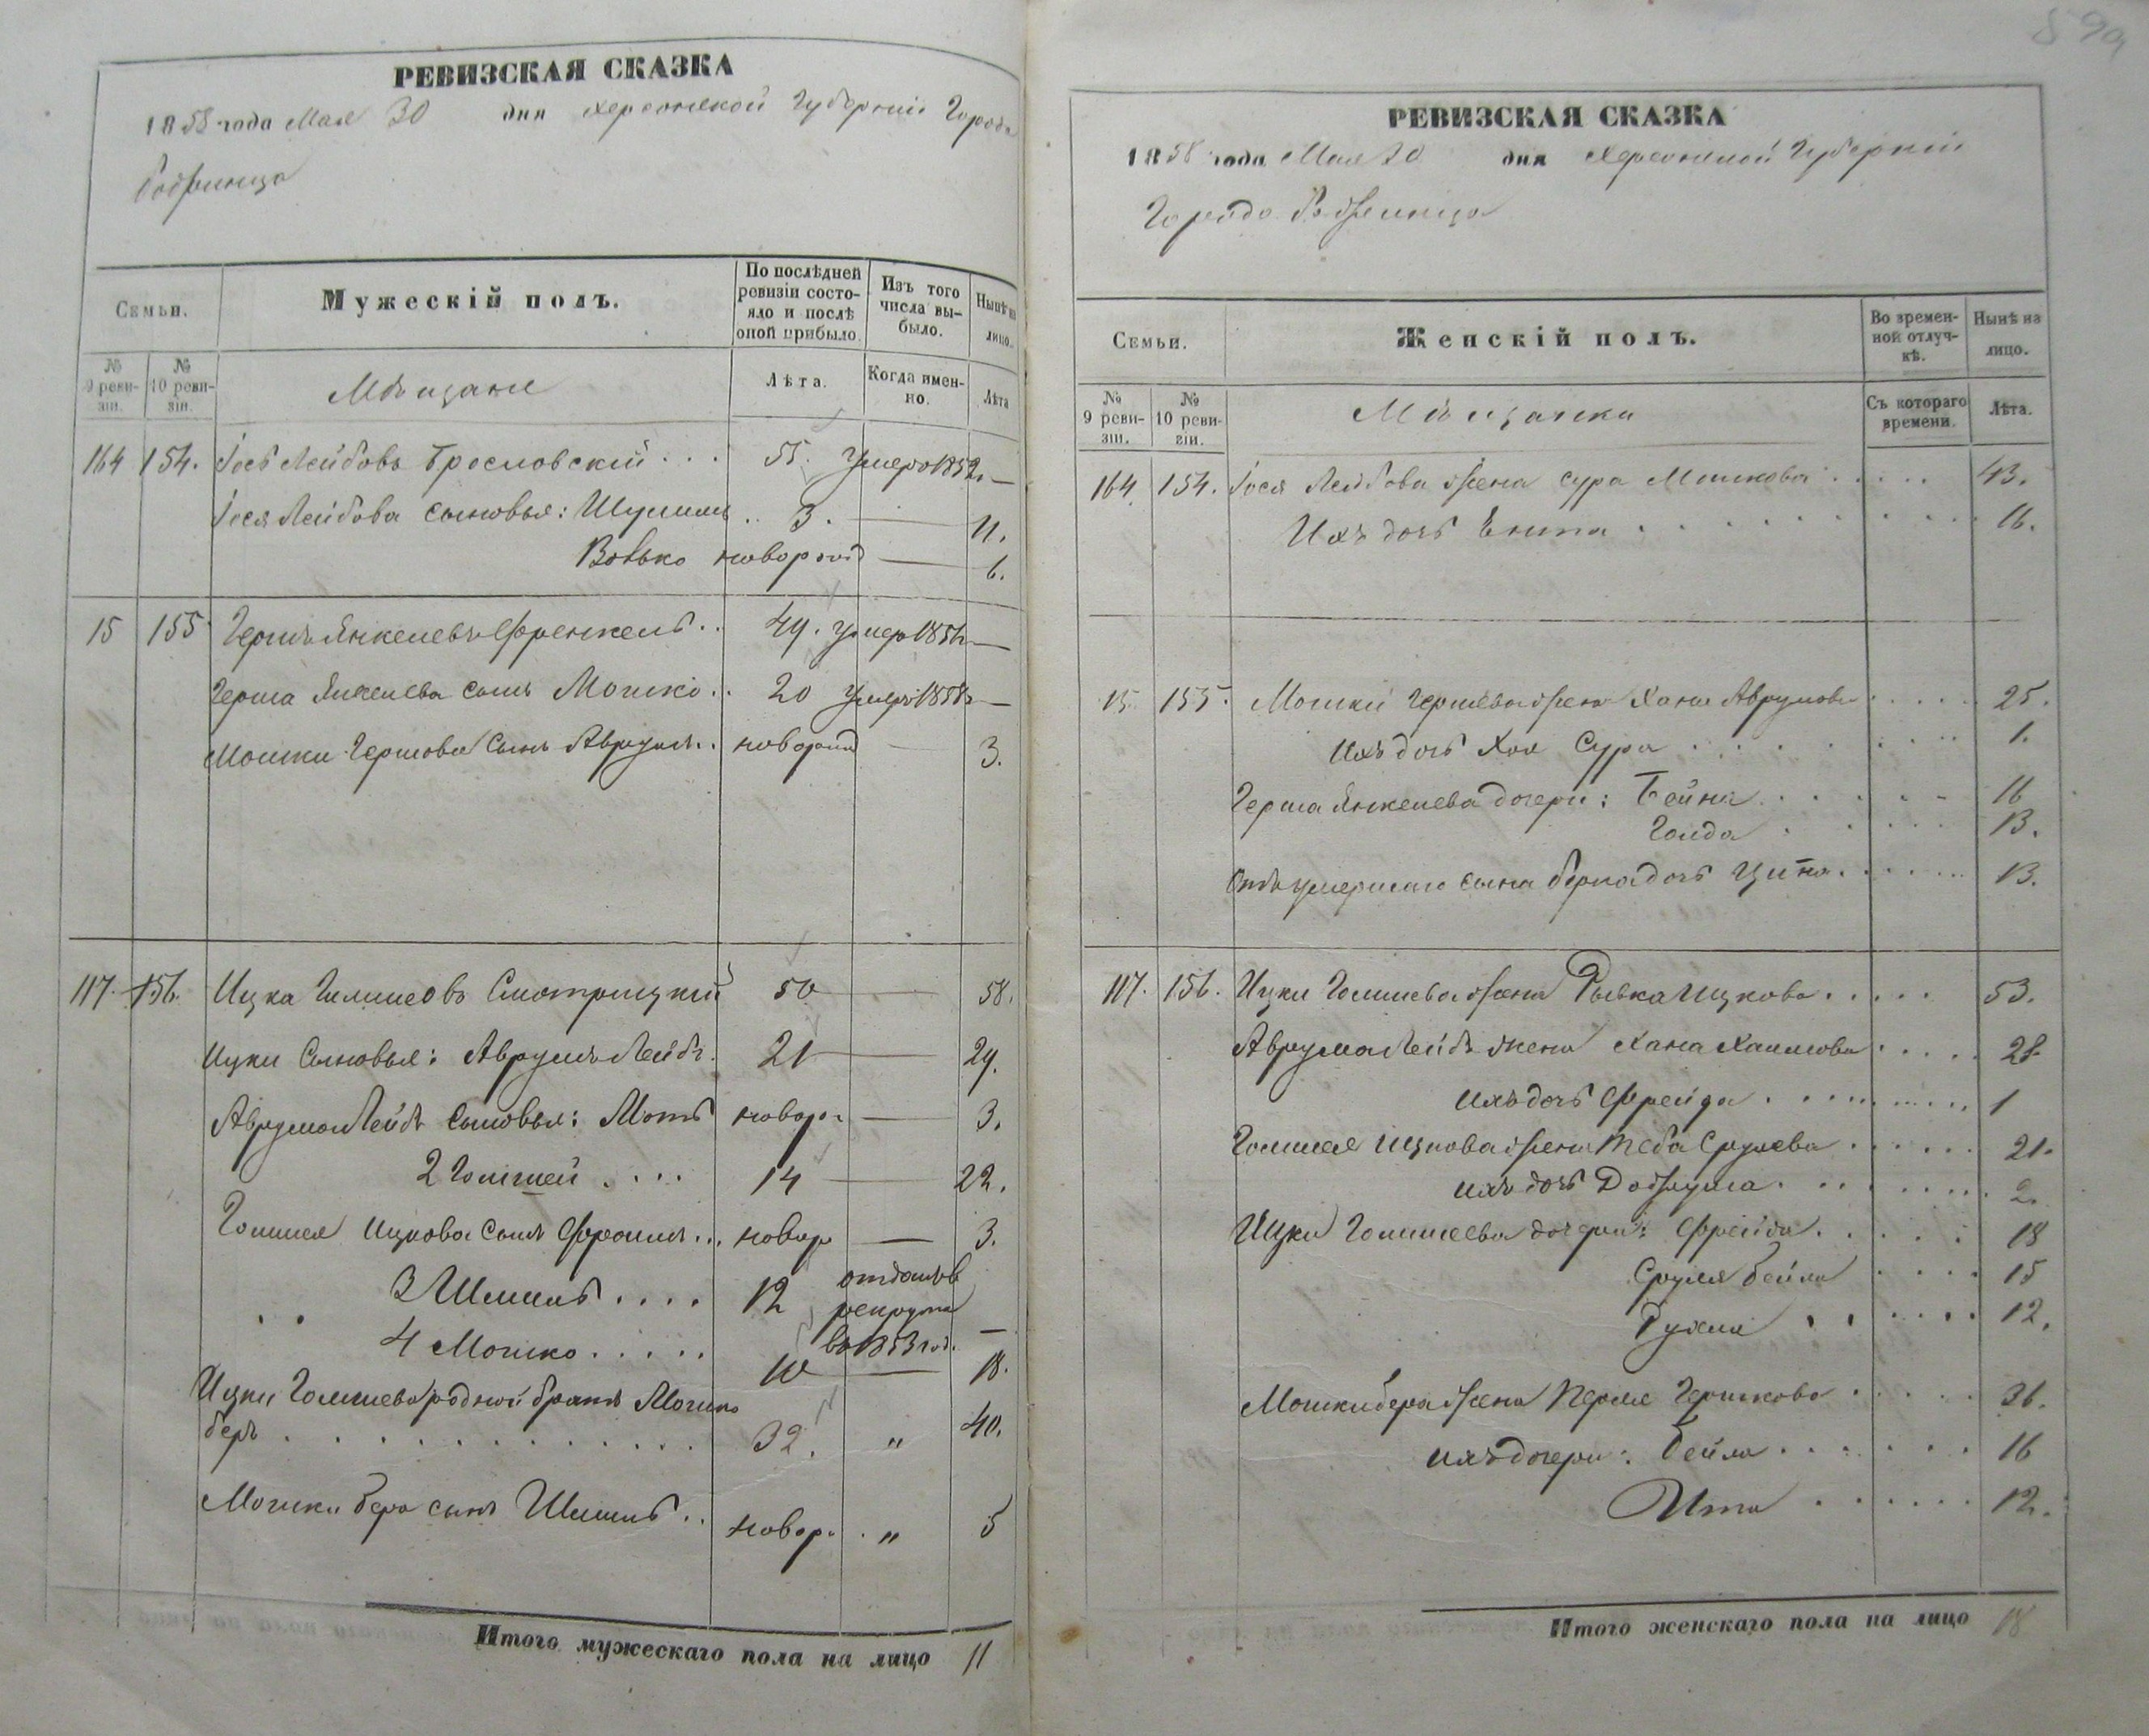 РЕВИЗСКАЯ СКАЗКА
1858 года Мая 30 дня Херсонской Губернiи Города
Бобринца
Семьи.
Мужескій полъ.
По послѣдней ревизіи состояло и послѣ оной прибыло.
Изъ того числа выбыло.
Нынѣ на лицо.
№ 9 ревизіи.
№ 10 ревизіи.
Мѣщане
Лѣта.
Когда именно.
Лѣта
164 154. Іось Лейбовъ Брословскій . . . 55. умеръ 1852 —
Іося Лейбова сыновья: Шулимъ . . 3. — 11.
Волько новорожд — 6.
15 155 Гершъ Янкелевъ Френкель . . 49. умер 1856 —
Герша Янкелева сынъ Мошко . . 20 умеръ 1858 —
Мошки Гершова сынъ Аврумъ . . новорожд — 3.
117. 156. Ицка Голишеовъ Смотрицкій 50 — 58.
Ицки Сыновья: Аврумъ Лейбъ. 21 — 29.
Аврума Лейбъ сыновья: Моть новор. — 3.
2 Голишей . . . . 14 — 22.
Голишея Ицкова сынъ Фроимъ . . . новор — 3.
3 Шмиль . . . . 12 отданъ в рекруты въ 1853 год. —
4 Мошко . . . . . 10 — 18.
Ицки Голишева родной братъ Мошко
беръ . . . . . . . . . . . . . 32. " 40.
Мошки бера сынъ Шмиль . . новор. . " 5
Итого мужескаго пола на лицо 11
РЕВИЗСКАЯ СКАЗКА
1858 года Мая 30 дня Херсонской Губернiи
Города Бобринца
Семьи.
Женскій полъ.
Во временной отлучкѣ.
Нынѣ на лицо.
№ 9 ревизіи.
№ 10 ревизіи.
Мѣщанки
Съ котораго времени.
Лѣта.
164 154. Іося Лейбова жена Сура Мошкова . . . . . 43.
Ихъ дочь Ента . . . . . . . . . . 16.
15. 155. Мошки Гершева жена Хана Аврумова . . . . . 25.
ихъ дочь Хая Сура . . . . . . . . . 1.
Герша Янкелева дочери: Бейна . . . . . . 16
Голда . . . . . . 13.
Отъ умершаго сына берка дочь Ципа . . . . . . 13.
117. 156. Ицки Голишева жена Рывка Ицкова . . . . . 53.
Аврума Лейбъ жена Хана Хаимова . . . . . 28
ихъ дочь Фрейда . . . . . . . . . 1
Голишея Ицкова жена Теба Срулева . . . . . . 21.
ихъ дочь Добрума . . . . . . . . . 2.
Ицки Голишеева дочери: Фрейда . . . . . 18
Сруля бейла . . . . 15
Рухля . . . . . . 12.
Мошки бера жена Перля Гершкова . . . . . 36.
ихъ дочери: Бейла . . . . . . . 16
Ита . . . . . . 12.
Итого женскаго пола на лицо 18